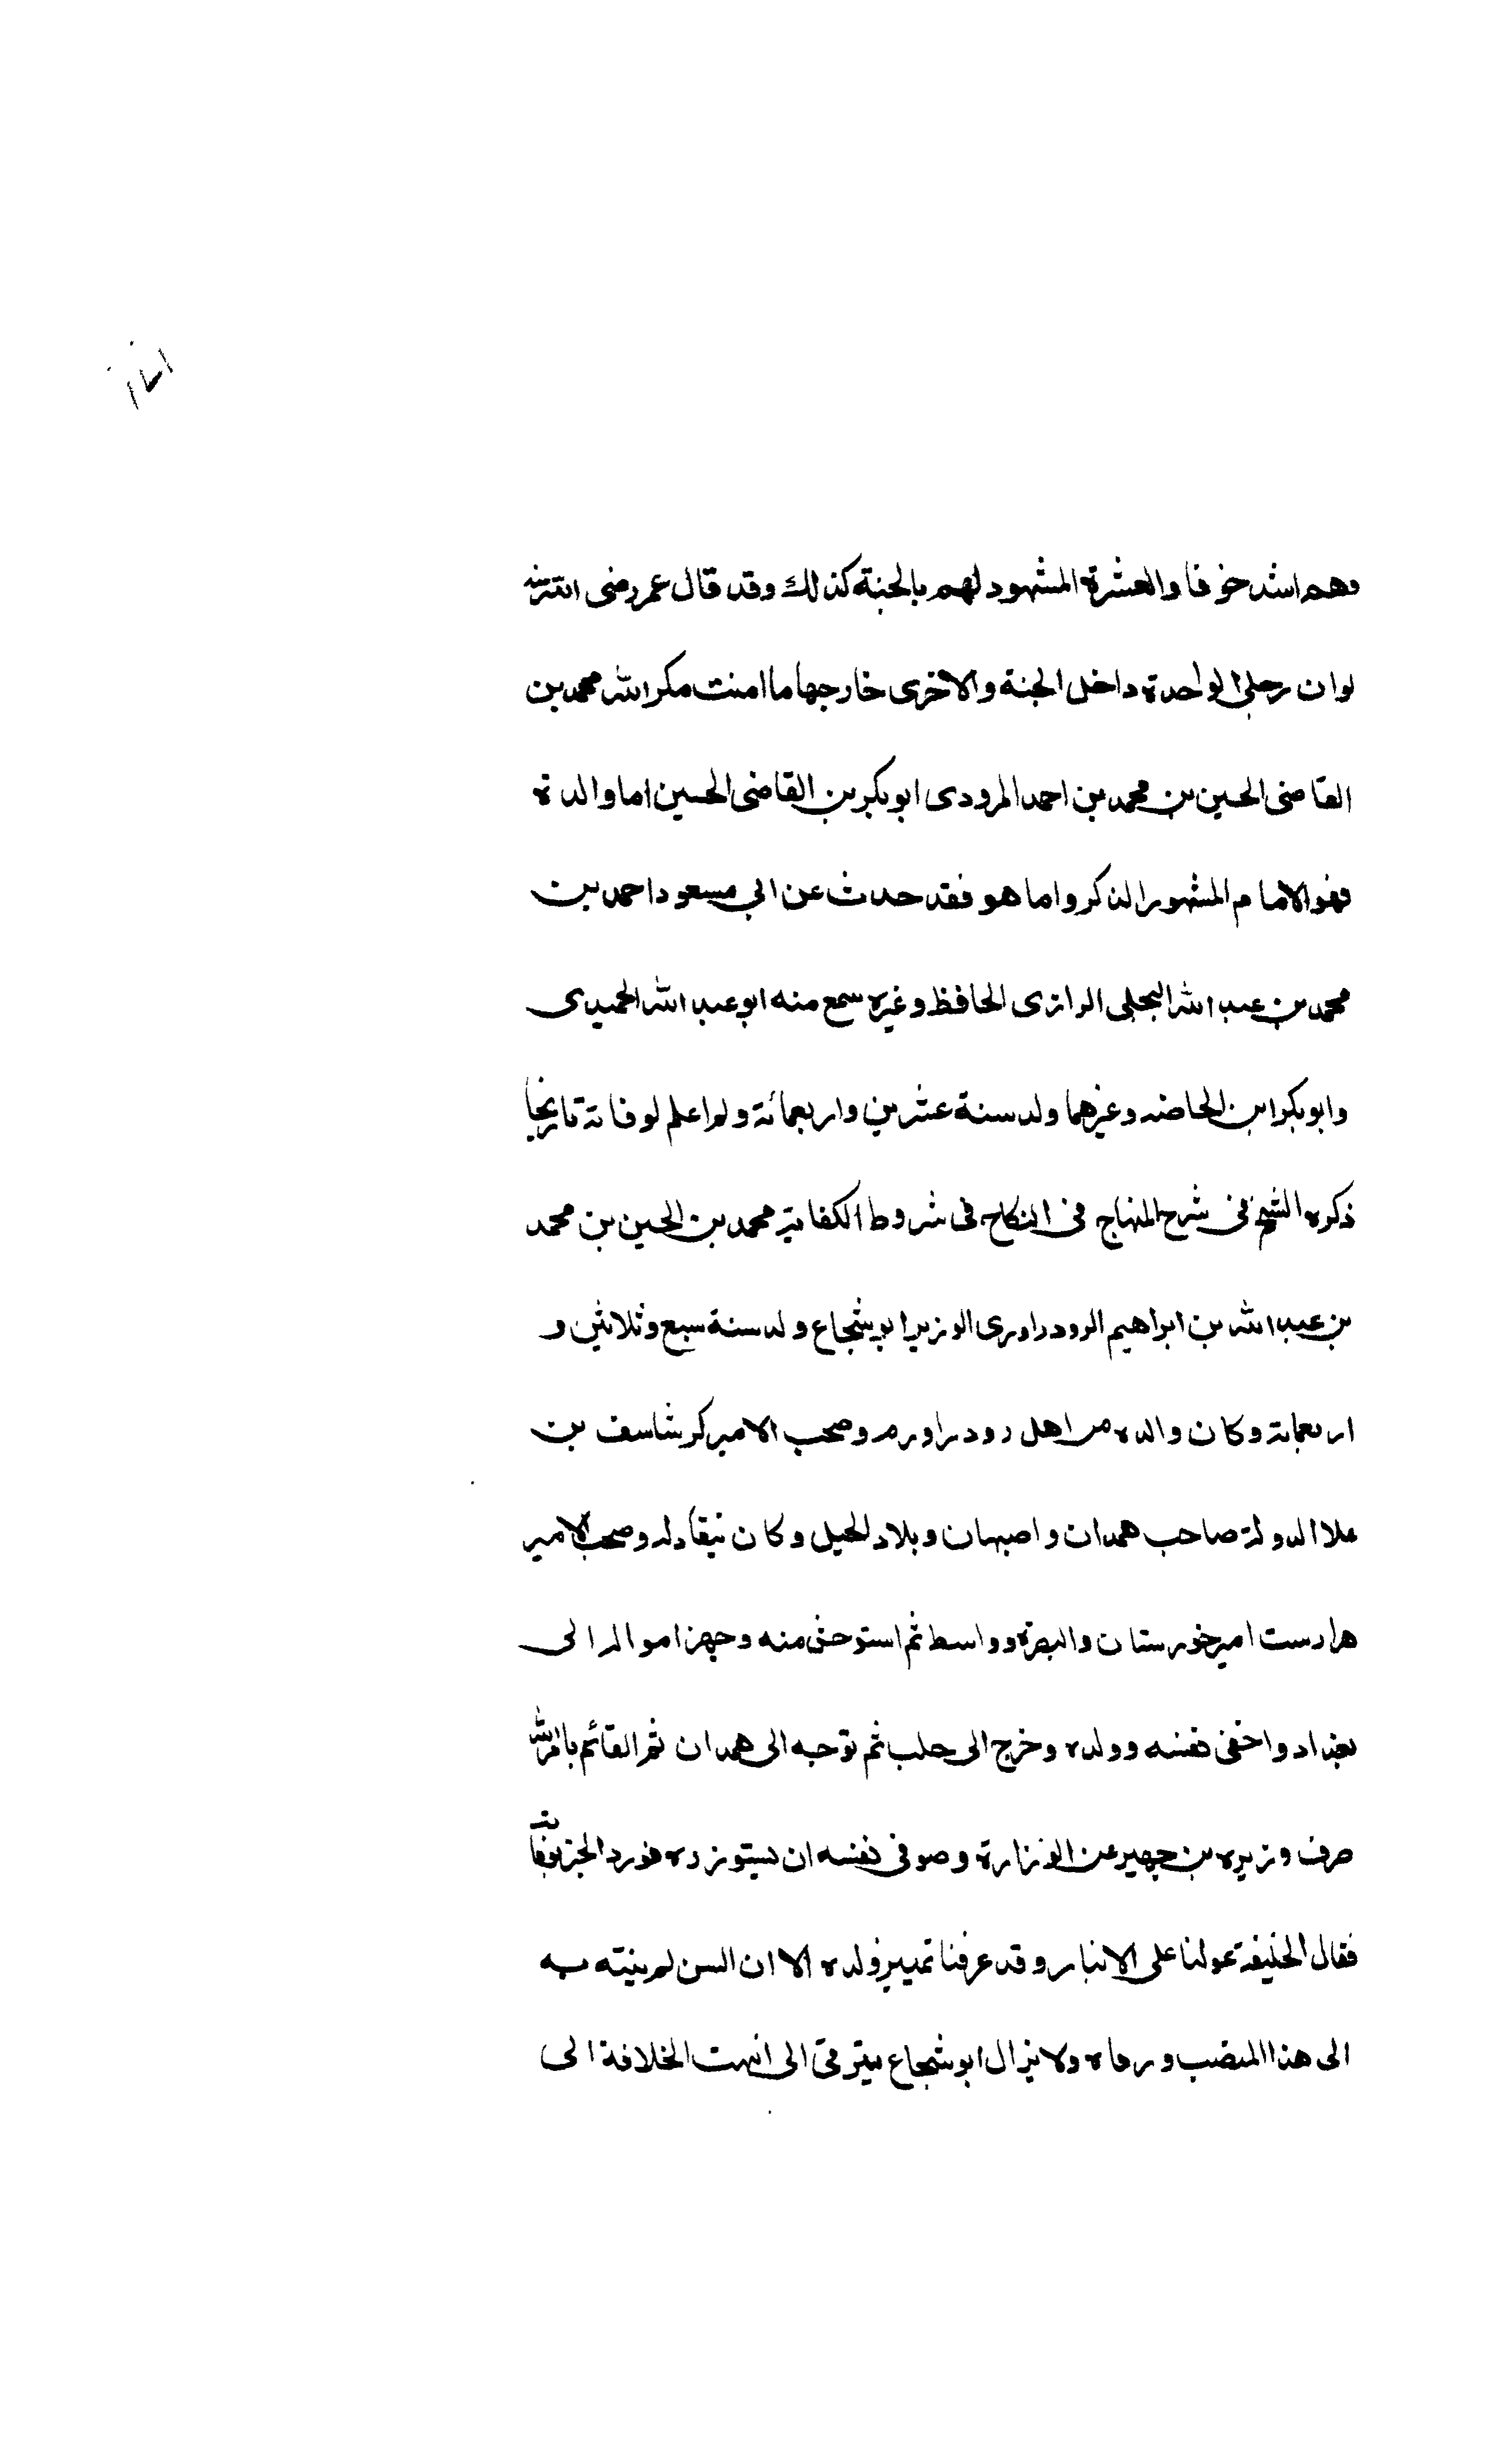 وهم اشد خوفا والعشرة المشهود لهم بالجنة كذلك وقد قال عمر رضى
لو ان رجلى الواحدة داخل الجنة والاخرى خارجها ما امنت مكر الله محمد بن
القاضى الحسين بن محمد بن احمد المرودى ابو بكر بن القاضى الحسين اما والدة
فهو الامام المشهور الذكر واما هو فقد حدث عن ابي مسعود احمد بن
محمد بن عبد الله البجلى الرازى الحافظ وغيره سمع منه ابو عبد الله الحميدى
وابو بكر ابن الخاضه وغيرهما ولد سنة عشرين واربعمائة ولم اعلم لوفاتة تاريخا
ذكره الشيخ فى شرح المنهاج فى النكاح فى شروط الكفاية محمد بن الحسين بن محمد
بن عبد الله بن ابراهيم الرودراورى الوزير ابو شجاع ولد سنة سبع وثلاثين و
اربعماية وكان والده من اهل رودراورم وصحب الامير كرشاسف بن
علا الدولة صاحب همدان واصبهان وبلاد الجيل وكان ينقاد له وصحب الامير
هرارست امير خورستان والبصرة وواسط ثم استوحش منه وجهز امواله الى
بغداد واخفى نفسه وولده وخرج الى حلب ثم توجه الى همدان ثم القائم بامر الله
صرف وزيره بن جهير عن الوزارة وصوفى نفسه ان يستوزره فورد الخبر بوفاته
فقال الخليفة عولنا على الانبار وقد عرفنا تمييز ولده الا ان السن لم ينيته به
الى هذا المنصب ورماه ولا يزال ابو شجاع يترقى الى انهت الخلافة الى